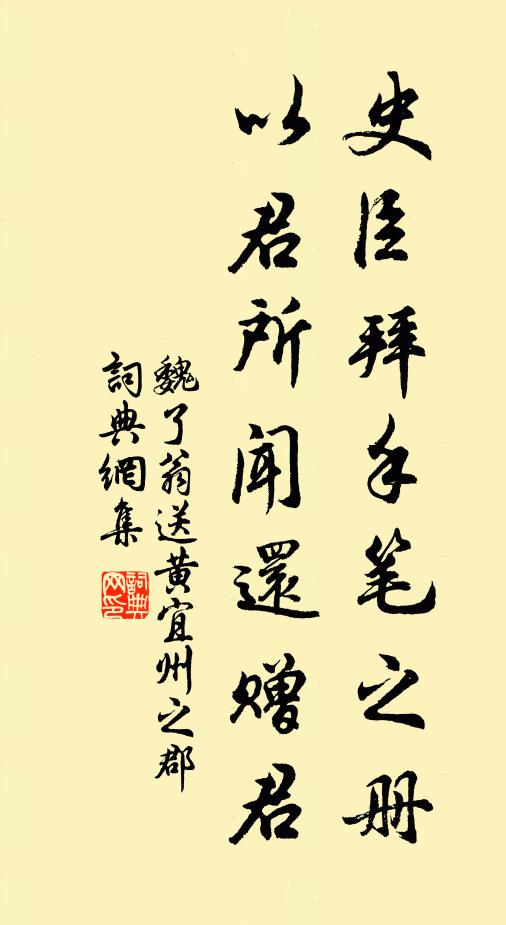 史臣拜手笔之册
以君所闻還赠君
魏了翁送黄宜州之郡
詞典網集
詞典
网印